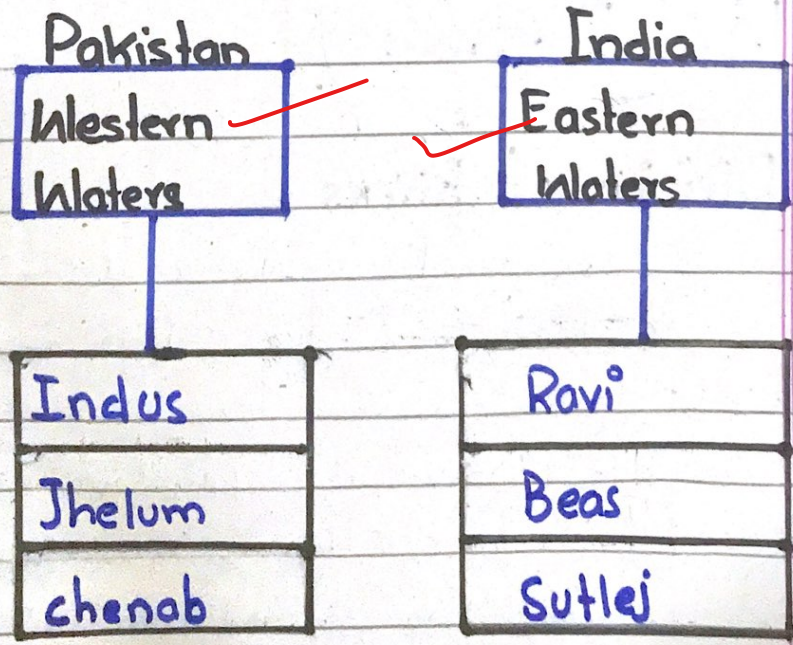 Pakistan
Western
Waters
Indus
Jhelum
chenab
India
Eastern
Waters
Ravi
Beas
Sutlej